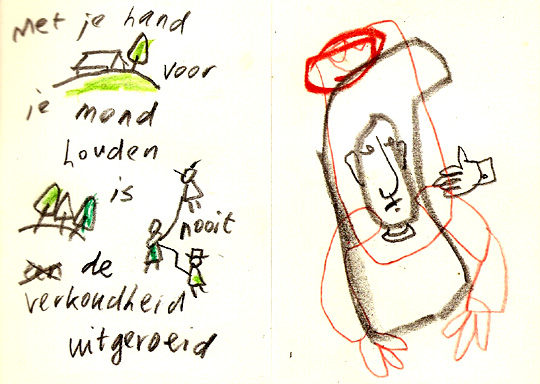 Met je hand
voor
je mond
houden
is
nooit
de
verkoudheid
uitgeroeid